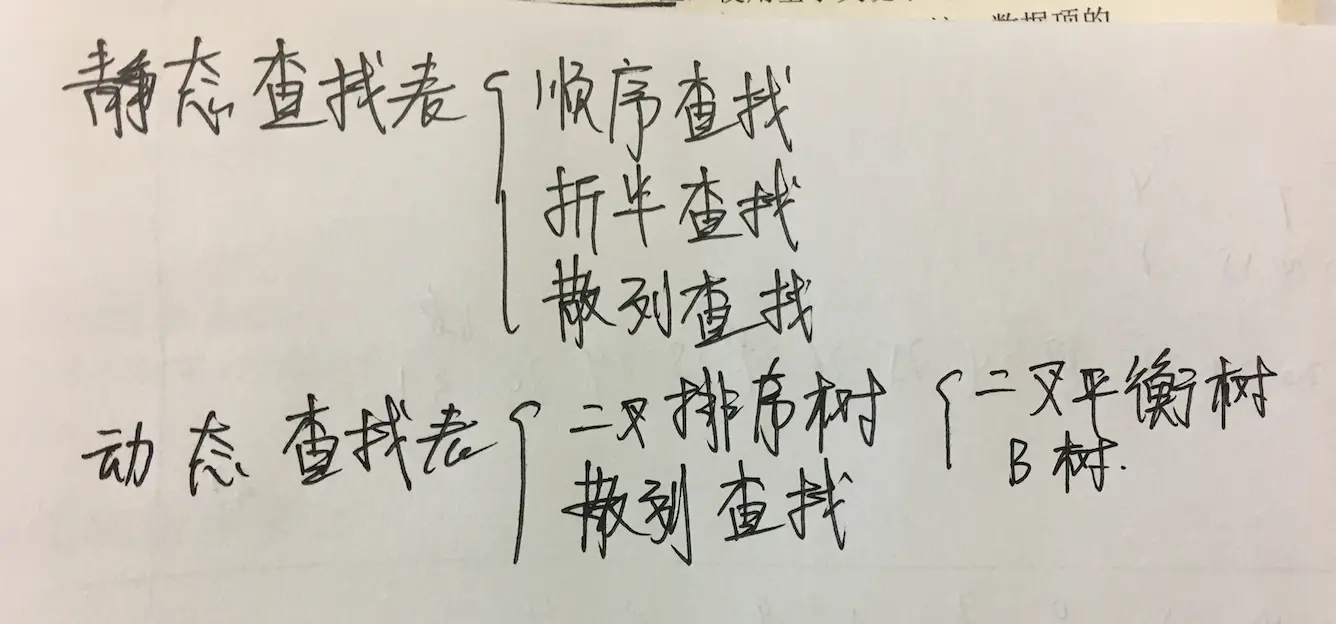 数据项的
静态查找表 { 顺序查找
折半查找
散列查找
动态查找表 { 二叉排序树 { 二叉平衡树
B树.
散列查找